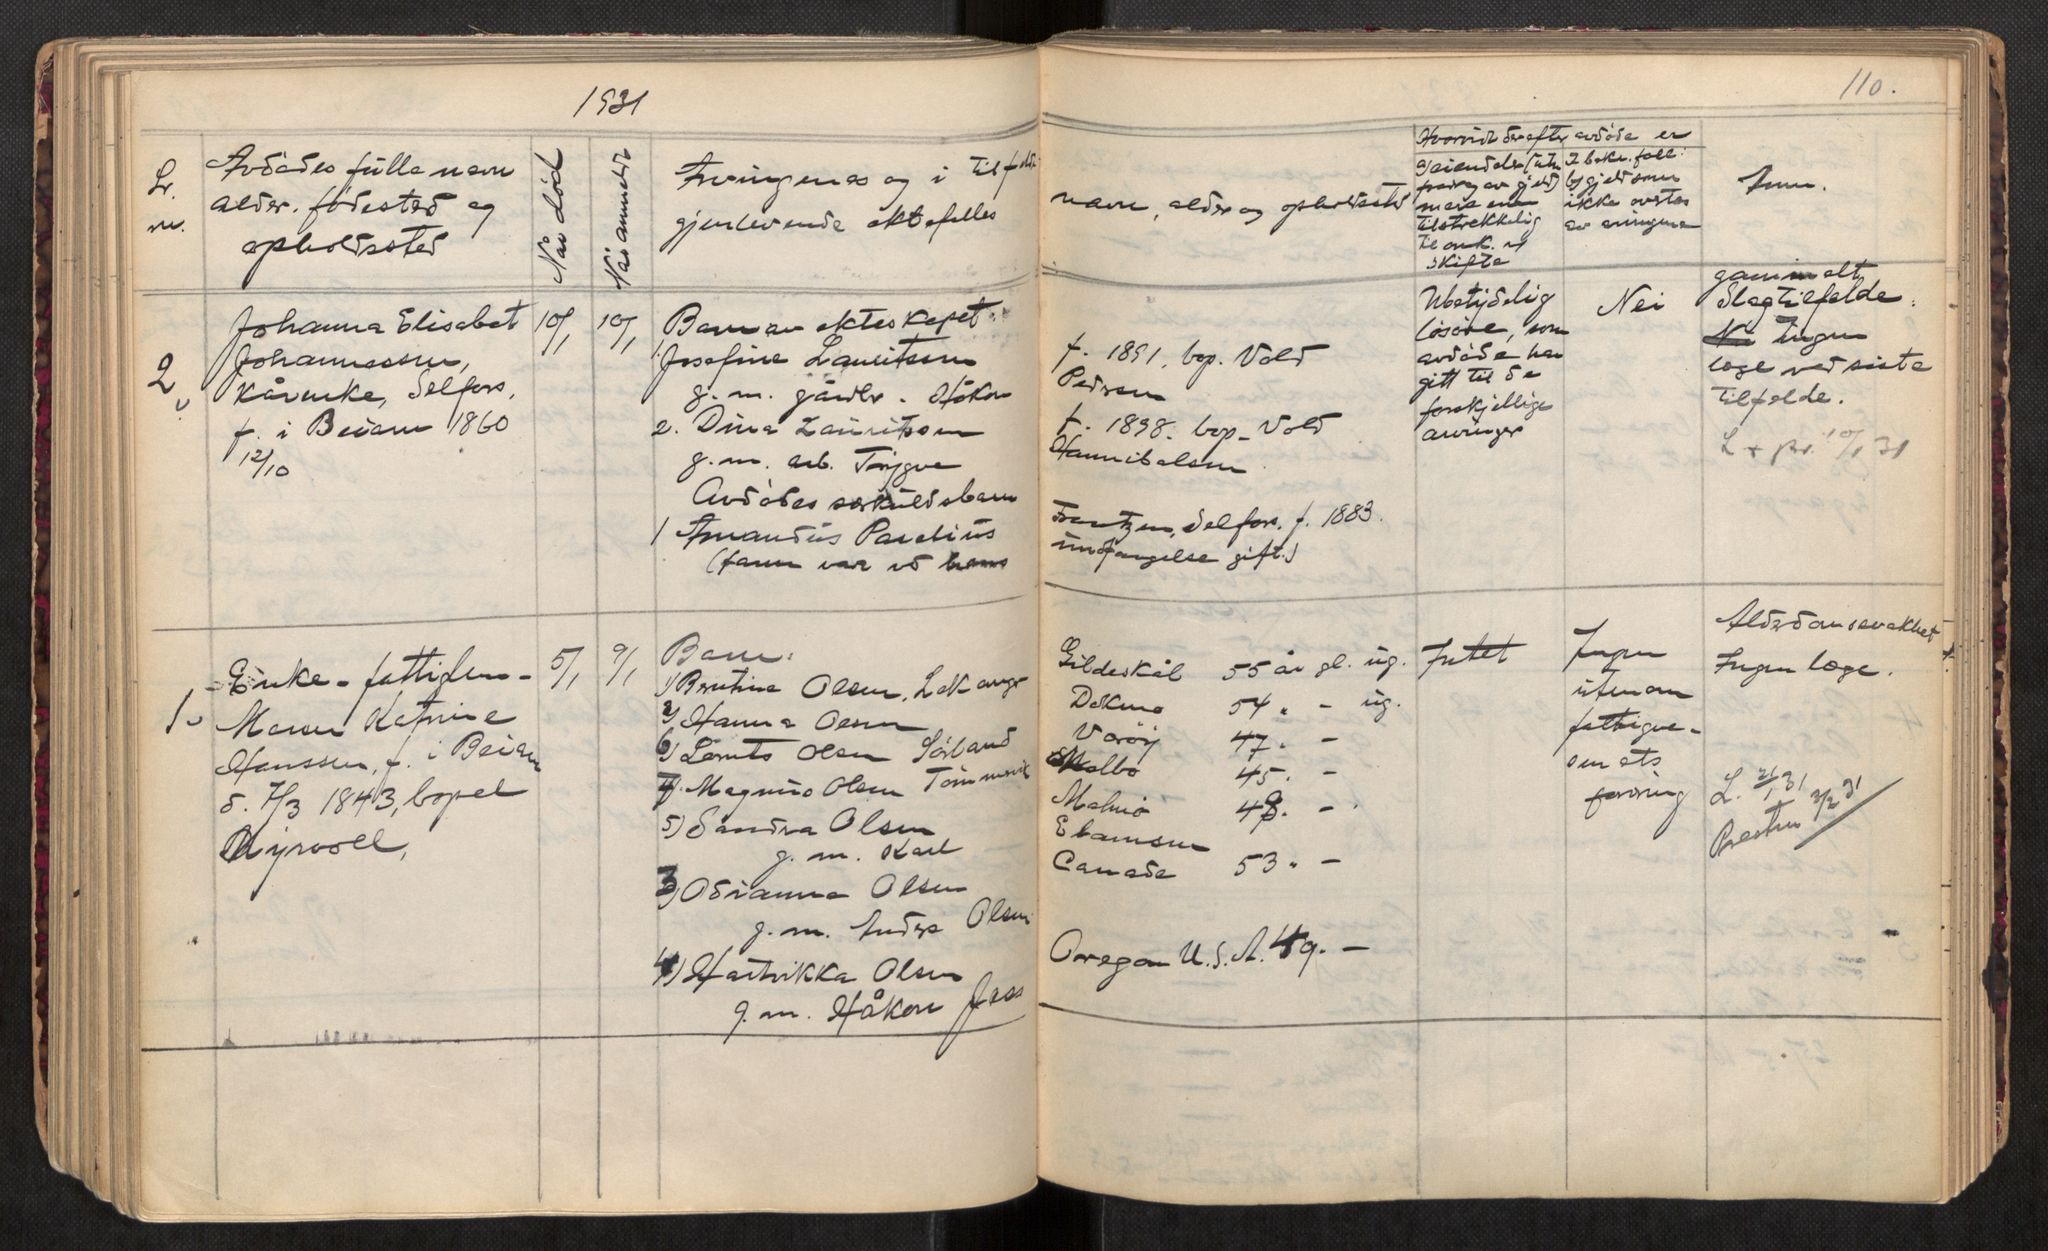 1931
110.
Lr.
nr.
Avdødes fulle navn
alder, fødested og
opholdssted
Når død
Når anmeldt
Arvingenes og i tilfelde
gjenlevende ektefelles
navn, alder og opholdssted
Hvorvidt der efter avdøde er
a) eiendeler (uten
fradrag av gjeld)
mere enn
tilstrekkelig
til omk. v
skifte
I bekr. fall:
b) gjeld som
ikke overtas
av arvingene
Anm.
2
Johanna Elisabet
Johannessen,
Kårenke, Selfors,
f. i Beiarn 1860
12/10
10/1
10/1
Barn av ekteskapet:
Josefine Lauritsen
g.m. gårdbr. Håkon
2. Dina Lauritsen
g.m. arb. Trygve
Avdødes særkuldsbarn
1 Amandus Parelius
(Hann var ved hennes
f. 1891. bop. Vold
Pedersen
f. 1898. bop. Vold
Hannibalsen
Frantzen, Selfors. f. 1883.
undfangelse gift.)
Ubetydelig
løsøre, som
avdøde har
gitt til de
forskjellige
arvinger
Nei
gammelt
slagtilfelde.
Ingen
læge ved siste
tilfelde.
L + pr. 10/1 31
1
Enke - fattiglem -
Maren Katrine
Hanssen, f. i Beiarn
d. 7/3 1843, bopel
Røsvoll,
5/1
9/1
Barn:
1) Bentine Olsen, Lekanger
2) Hanna Olsen
6) Lorents Olsen Sørland
7. Magnus Olsen Tømmervik
5) Sandra Olsen
g.m. Karl
3) Odianna Olsen
g.m. Andr Olsen
4) Hartvikka Olsen
g.m. Håkon
Gildeskål 55 år gl. ug.
Dokmo 54 " - ug.
Værøy 47. " -
45. " -
Malmø 48. " -
Ebamsen
Canada 53 " -
Oregon U.S.A. 49. -
Intet
Ingen
utenom
fattigve-
senets
fordring
Alderdomssvakhet
Ingen læge.
L. 2/1 31
Presten 3/2 31